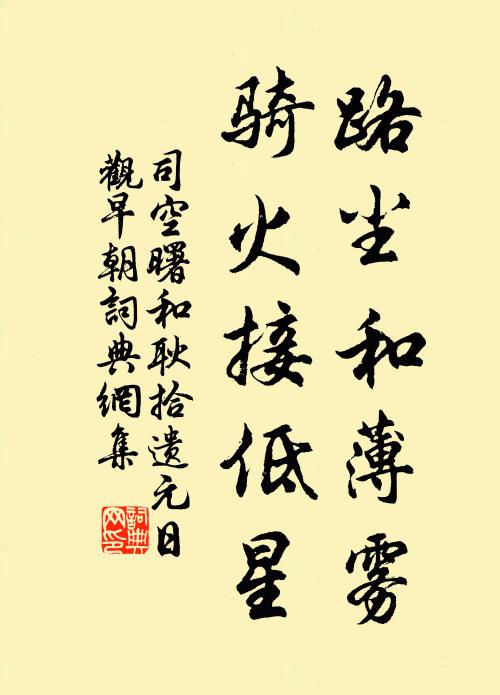 路尘和薄雾
骑火接低星
司空曙和耿拾遗元日
觀早朝詞典網集
詞典网印